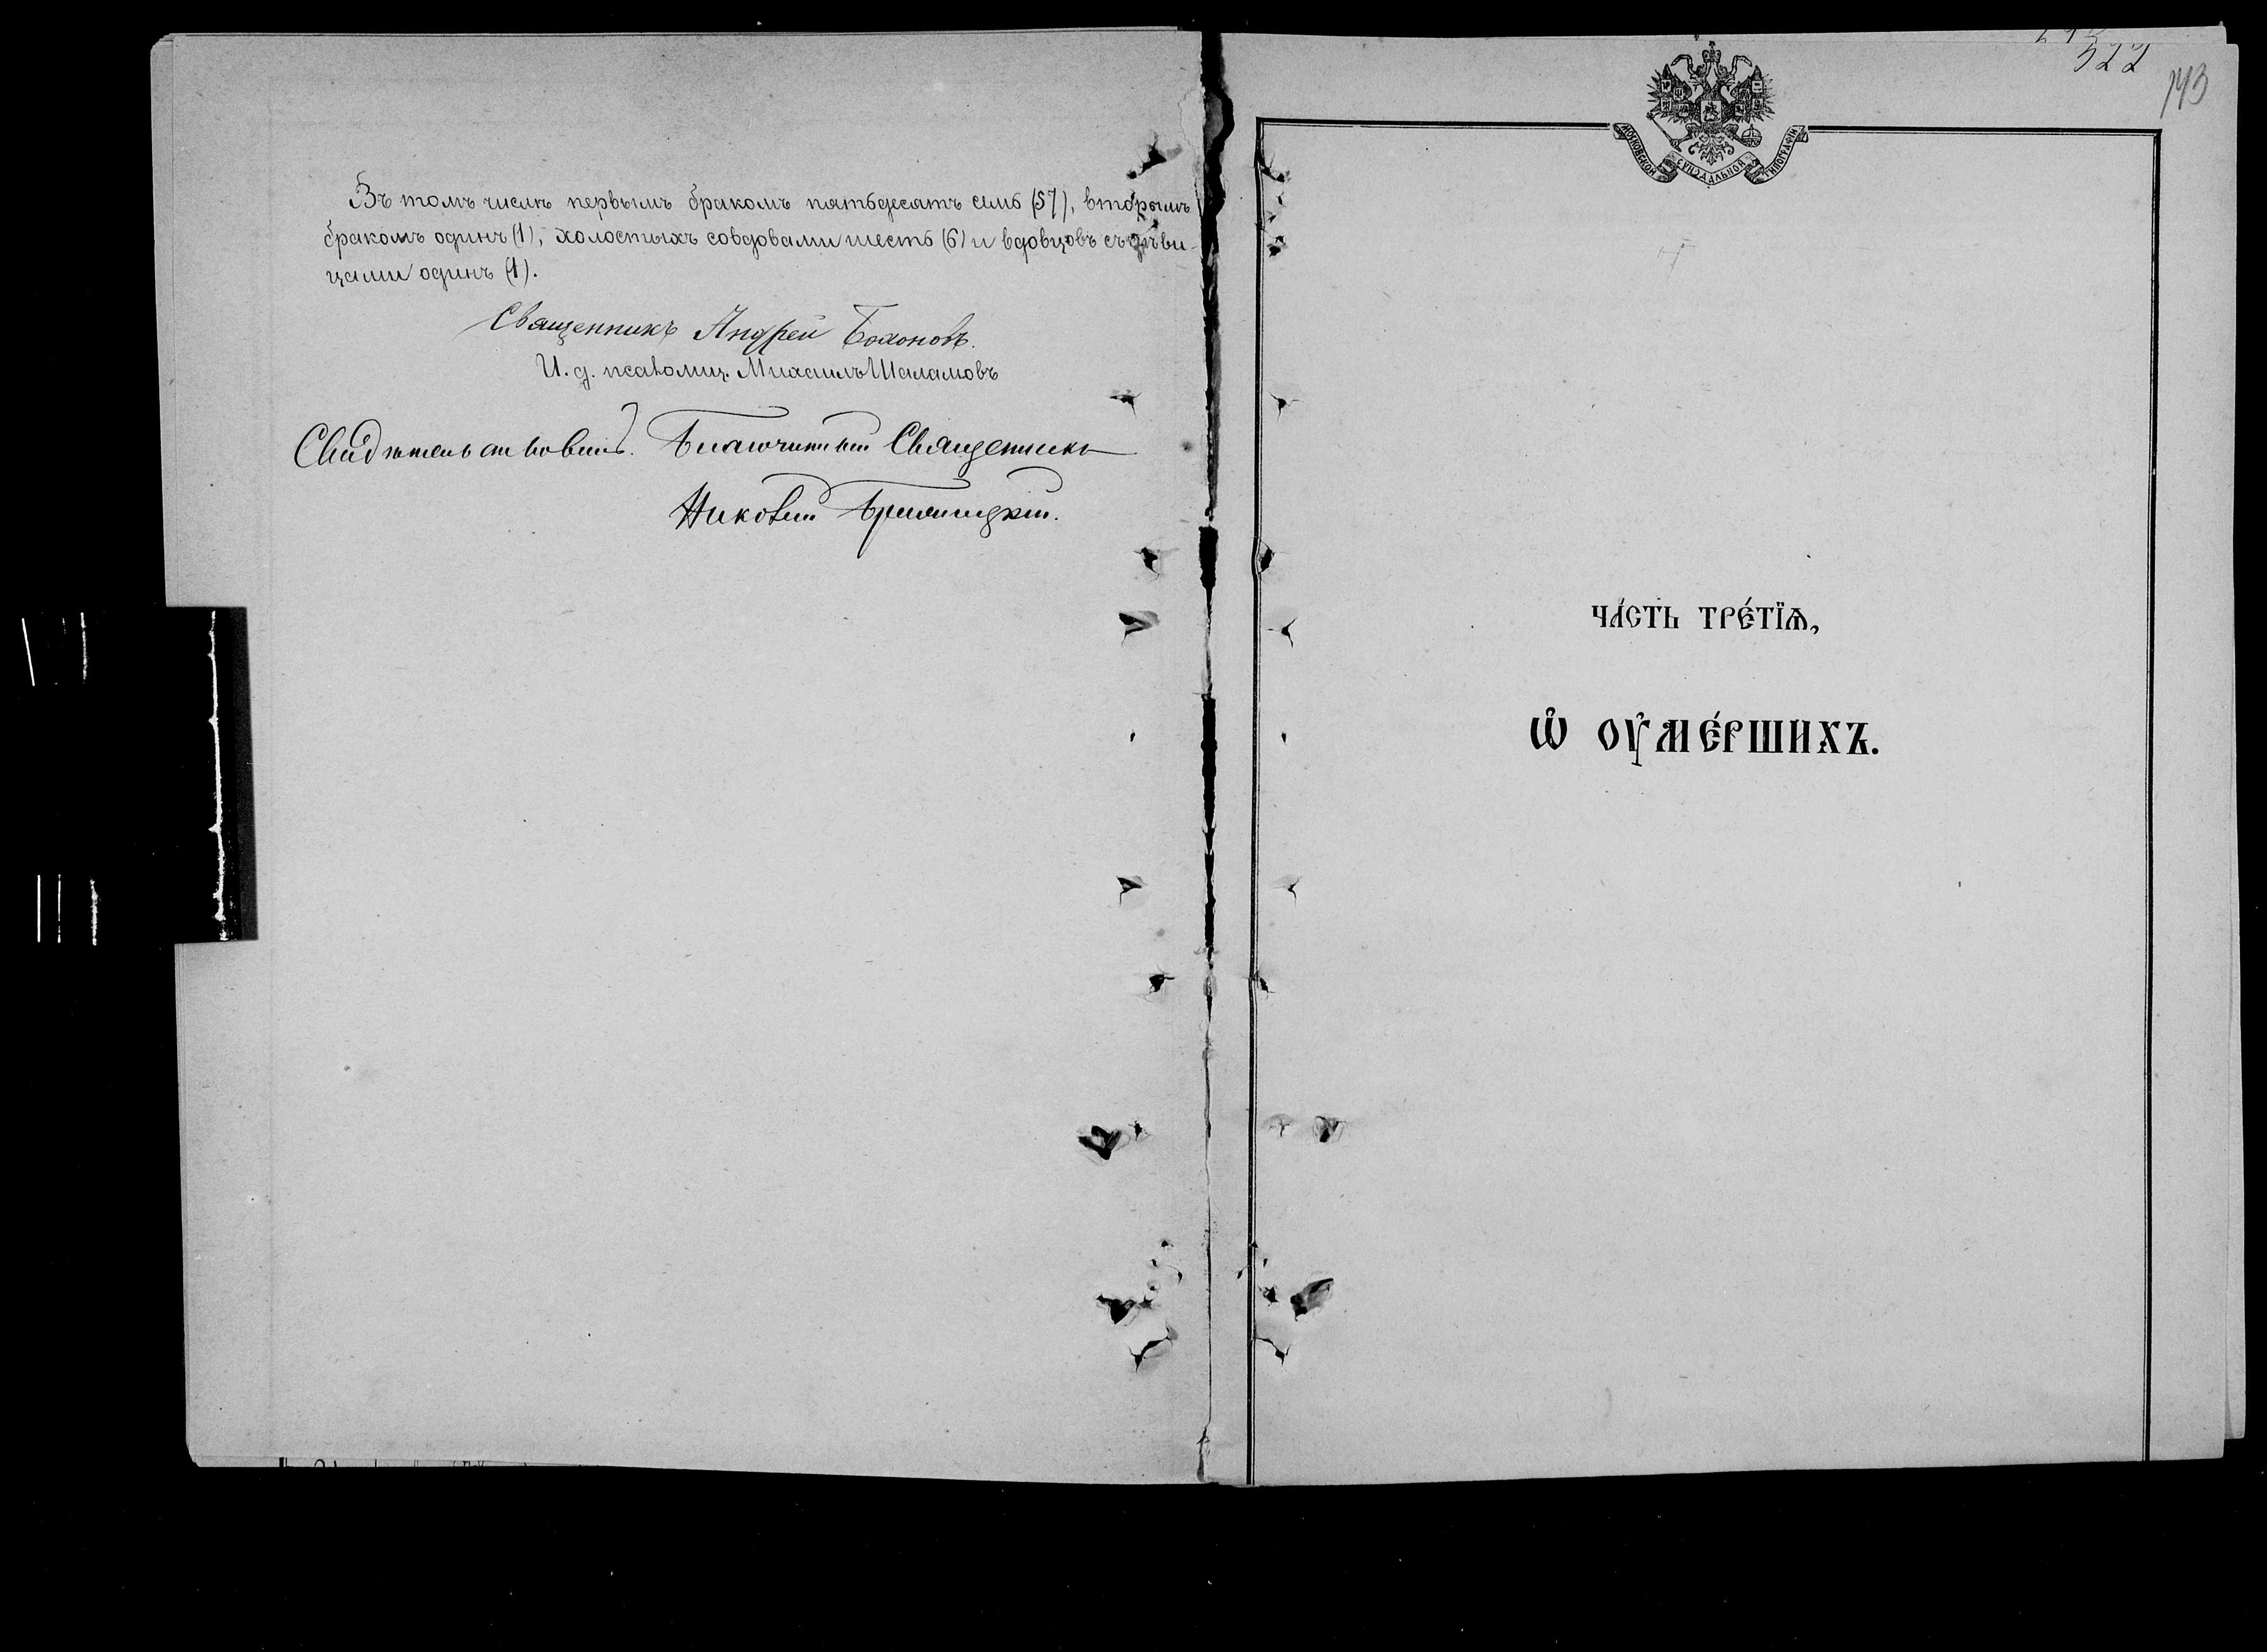 Въ томъ числѣ первымъ бракомъ пятьдесятъ семь (57), вторымъ
бракомъ одинъ (1), холостыхъ со вдовами шесть (6) и вдовцовъ съ дѣви-
цами одинъ (1).
Священникъ Андрей Бохоновъ.
И. д. псаломщ. Михаилъ Шаламовъ
Свидѣтельствовалъ. Благочинный Священникъ
522
143
МОСКОВСКОЙ СѴНОДАЛЬНОЙ ТИПОГРАФІИ
ЧА́СТЬ ТРЕ́ТЇѦ,
Ѡ҆ ОУ҆МЕ́РШИХЪ.